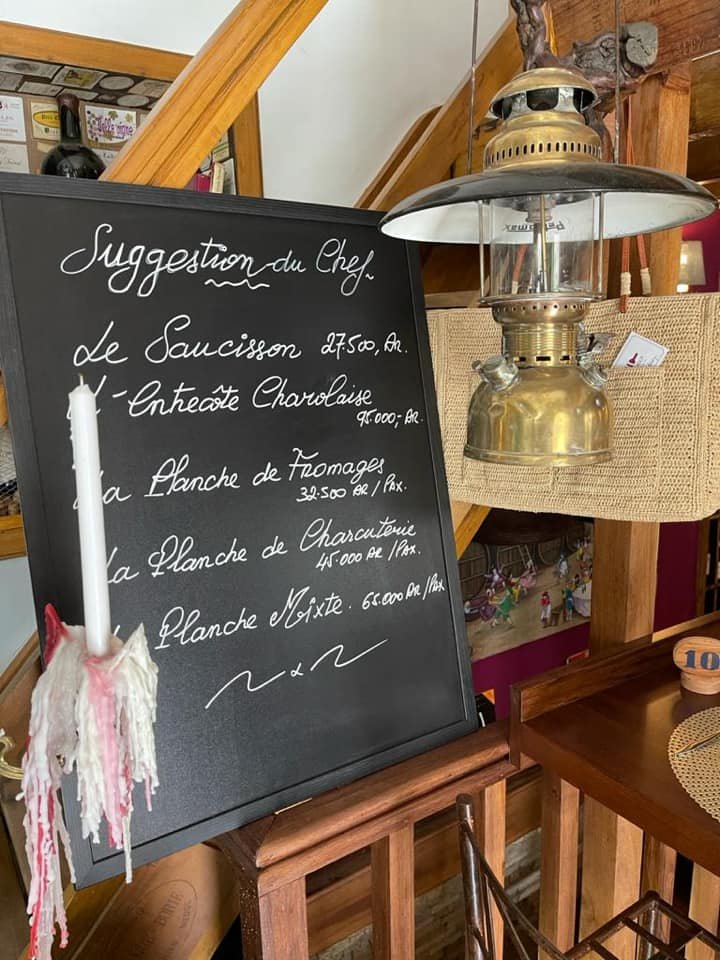 Suggestion du Chef
Le Saucisson 27.500, AR.
L'-Entrecôte Charolaise
95.000,- AR.
La Planche de Fromages
32.500 AR / PAX.
La Planche de Charcuterie
45.000 AR / PAX.
Planche Mixte. 65.000 AR / PAX
Petromax
Belle vigne
10